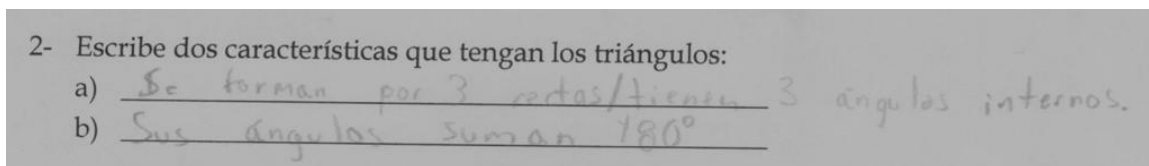 2- Escribe dos características que tengan los triángulos:
a) Se forman por 3 rectas/tienen 3 ángulos internos.
b) Sus ángulos suman 180°